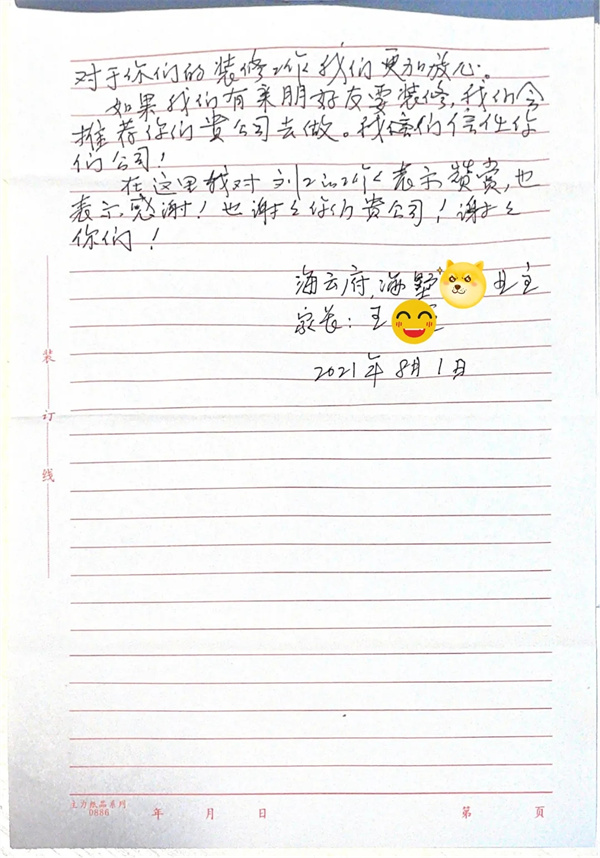 对于你们的装修工作我们更加放心。
如果我们有亲朋好友要装修,我们会
推荐你们贵公司去做。我们信任你
们公司!
在这里我对刘工的工作表示赞赏,也
表示感谢!也谢谢你们贵公司!谢谢
你们!
海云府,海墅 业主
家长:王
2021年8月1日
装
订
线
D886
年 月 日 第 页